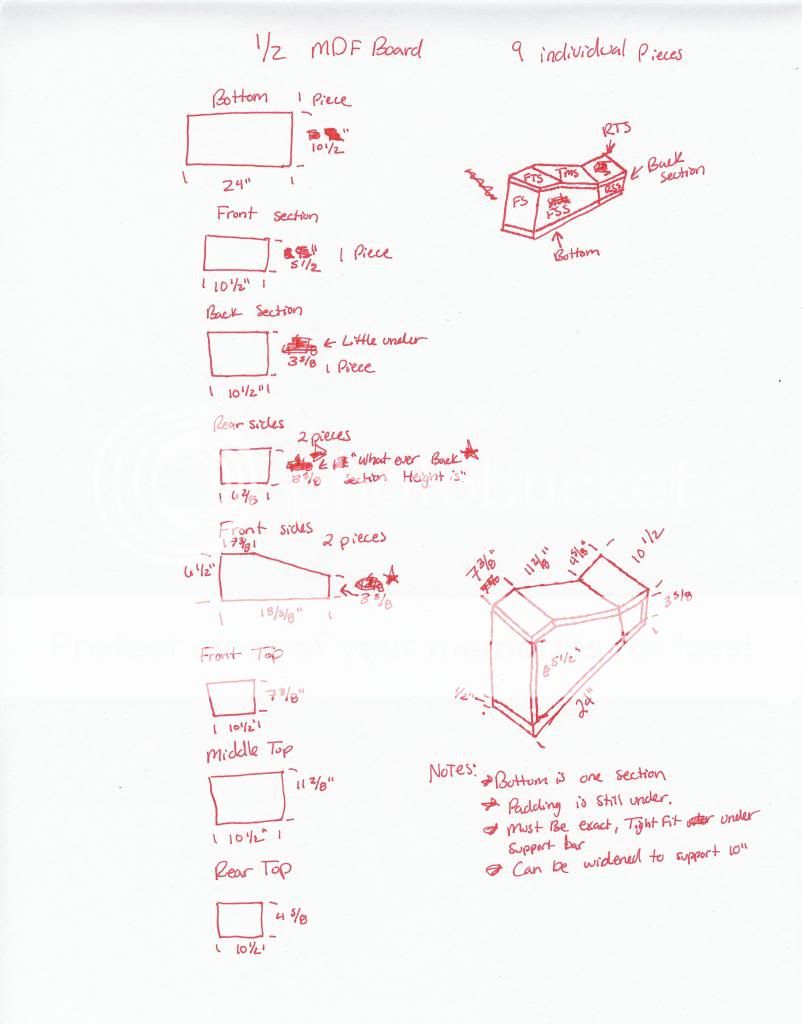 1/2 MDF Board
9 individual pieces
Bottom 1 Piece
10 1/2
24"
RTS
Back section
FTS TMS
FS
Bottom
Front section
5 1/2 1 Piece
10 1/2"
Back Section
← Little under
3 5/8 1 Piece
10 1/2"
Rear sides
2 pieces
← "What ever Back
3 5/8 section Height is"
6 3/8
Front sides
7 3/8 2 pieces
6 1/2"
3 5/8
18 5/8"
7 3/8" 11 2/8" 4 5/8" 10 1/2
3 5/8
5 1/2"
1/2"
24"
Front Top
7 3/8"
10 1/2"
Middle Top
11 2/8"
10 1/2"
Rear Top
4 5/8
10 1/2
Notes:
Bottom is one section
Padding is still under.
Must Be exact, Tight Fit under
support bar
Can be widened to support 10"
photobucket
Protect more of your memories for less!